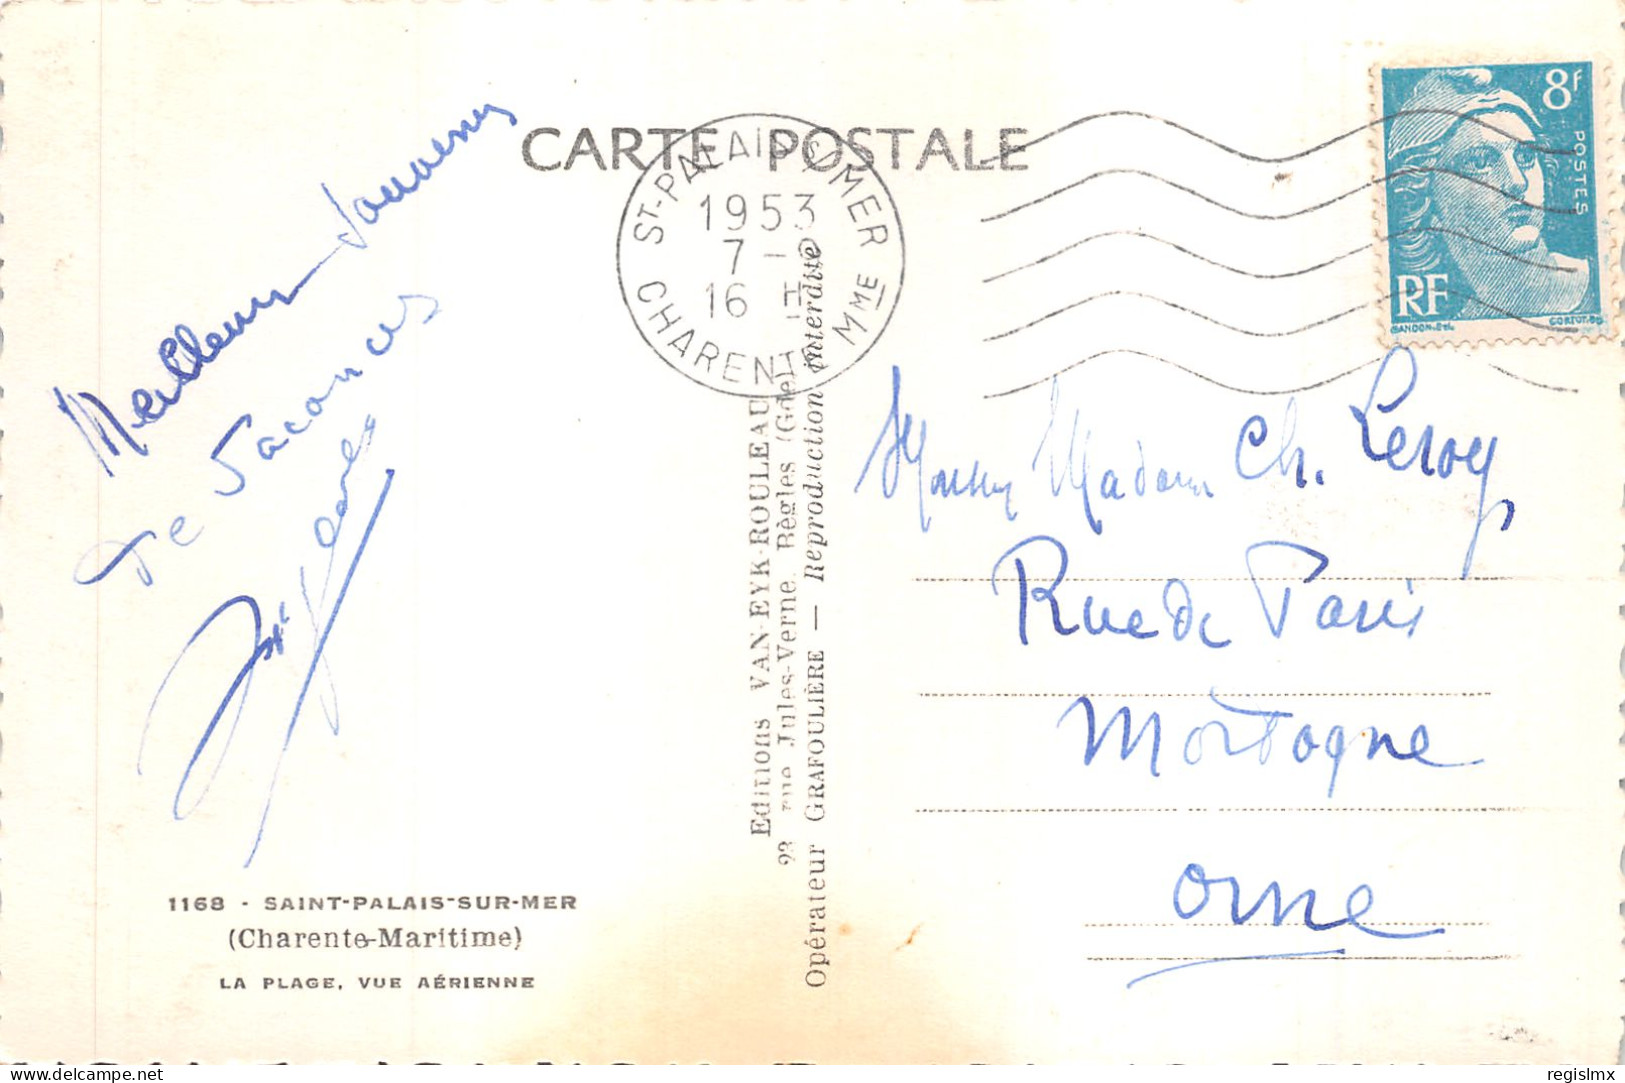 CARTE POSTALE
ST-PALAIS S/ MER
1953
7 -
16 H
CHARENTE MME
8F
POSTES
RF
GANDON-Del.
CORTOT-Sc.
Meilleurs souvenirs
de vacances
Monsieur Madame Ch. Leroy,
Rue de Paris
Mortagne
Orne
Editions VAN-EYK-ROULEAU
23 rue Jules-Verne. Bègles (Gde)
Opérateur GRAFOULIÈRE — Reproduction interdite
1168 - SAINT-PALAIS-SUR-MER
(Charente-Maritime)
LA PLAGE, VUE AÉRIENNE
regislmx